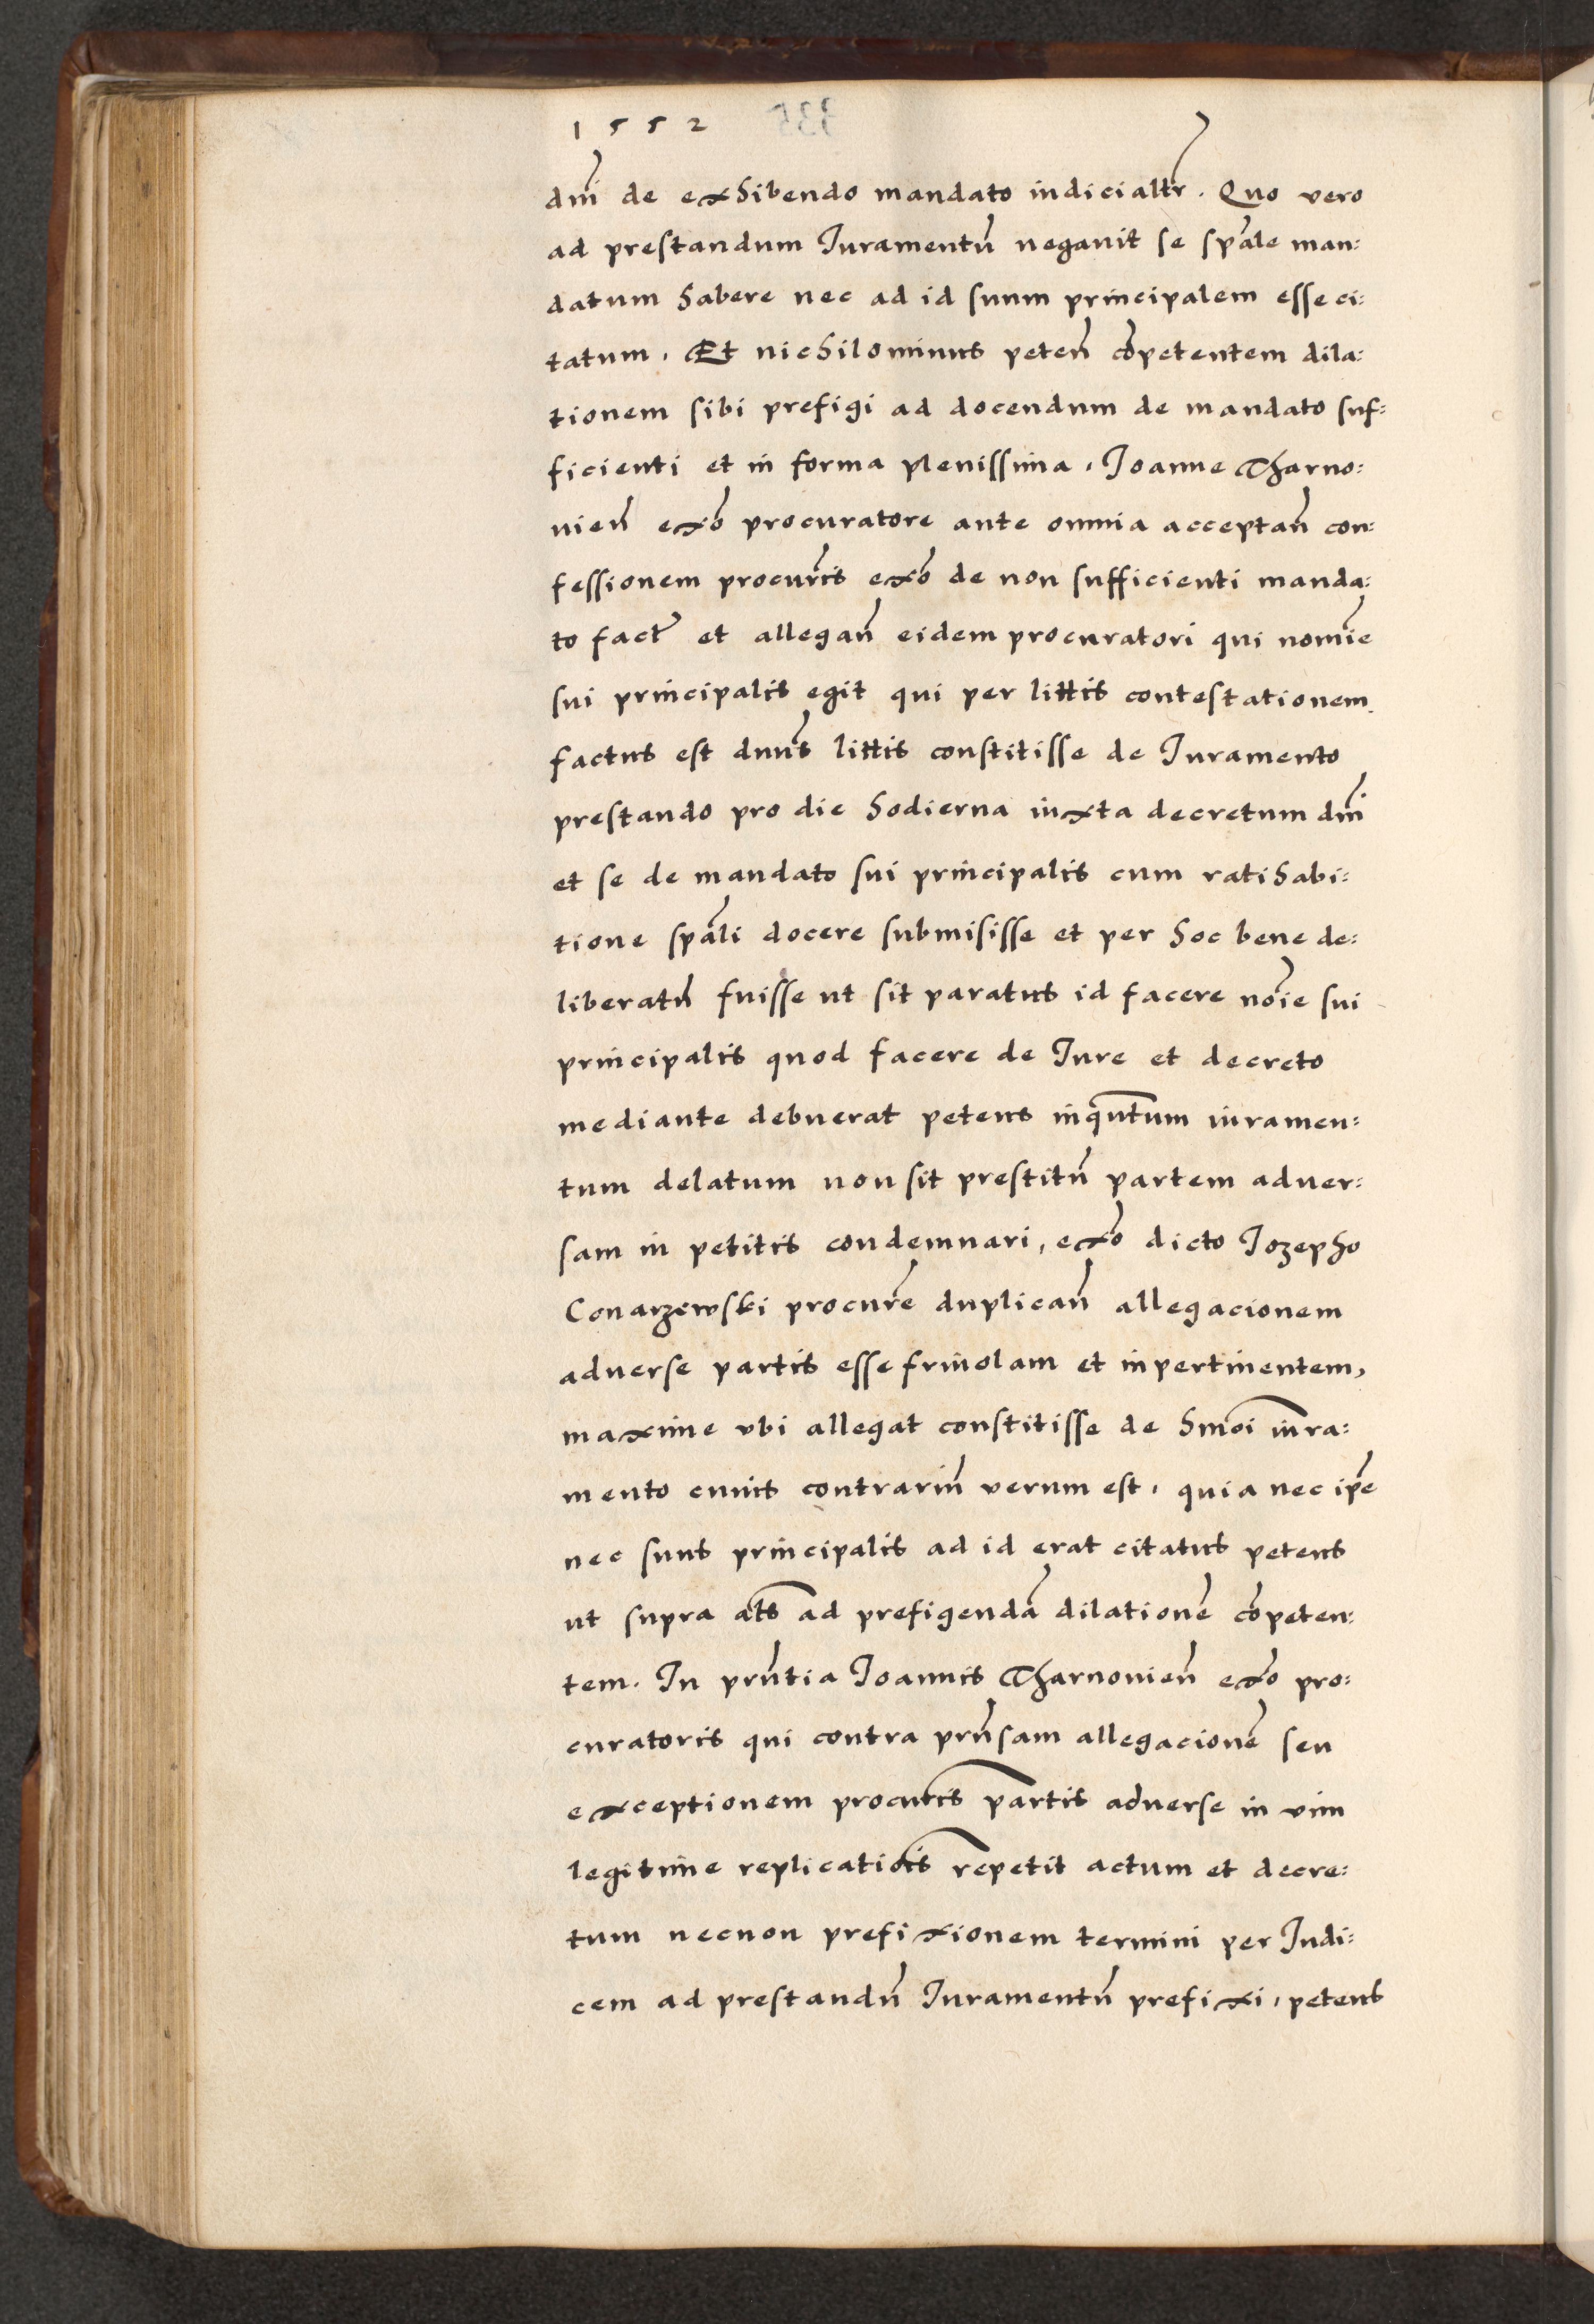 1552
dnĩ de exhibendo mandato iudicialtr̃. Quo vero
ad prestandum Iuramentũ negauit se spãle man:
datum habere nec ad id suum principalem esse ci:
tatum. Et nichilominus peteñ cõpetentem dila:
tionem sibi prefigi ad docendum de mandato suf:
ficienti et in forma plenissima, Ioanne Tharno:
uieñ exõ procuratore ante omnia acceptañ con:
fessionem procurĩs exõ de non sufficienti manda:
to fact̃ et allegañ eidem procuratori qui nomĩe
sui principalis egit qui per littis contestationem
factus est dnũs littis constitisse de Iuramento
prestando pro die hodierna iuxta decretum dnĩ
et se de mandato sui principalis cum ratihabi:
tione spãli docere submisisse et per hoc bene de:
liberatũ fuisse ut sit paratus id facere nõie sui
principalis quod facere de Iure et decreto
mediante debuerat petens inqũtum iuramen:
tum delatum non sit prestitũ partem aduer:
sam in petitis condemnari, exõ dicto Iozepho
Conarzewski procurẽ duplicañ allegacionem
aduerse partis esse friuolam et inpertinentem,
maxime vbi allegat constitisse de hmõi iura:
mento cuius contrariũ verum est, quia nec ip̃e
nec suus principalis ad id erat citatus petens
ut supra als̃ ad prefigendã dilationẽ cõpeten:
tem. In prñtia Ioannis Tharnouieñ exõ pro:
curatoris qui contra prñsam allegacionẽ seu
exceptionem procurĩs partis aduerse in vim
legitime replicatiõis repetit actum et decre:
tum necnon prefixionem termini per Iudi:
cem ad prestandũ Iuramentũ prefixi, petens